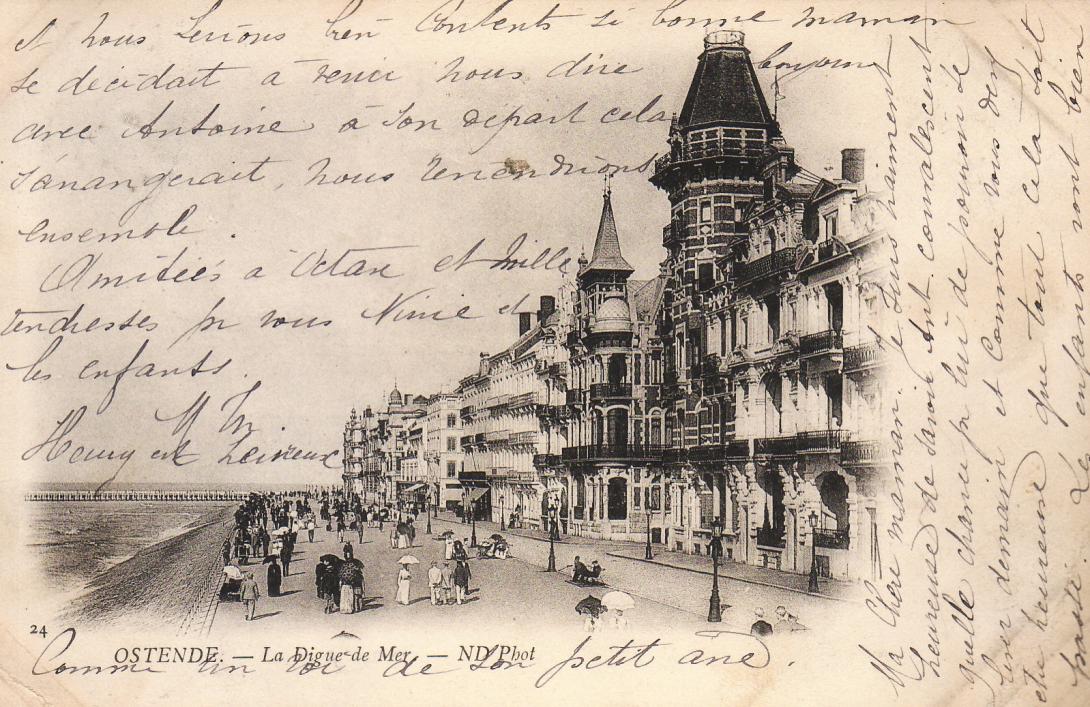 et nous serions bien contents si bonne maman
se décidait à venir nous dire bonjour
avec Antoine à son départ cela
s'arrangerait, nous reviendrions
ensemble.
Amitiés à Octave et mille
tendresses pr vous Ninie et
les enfants.
Henry est heureux
24
OSTENDE. — La Digue de Mer. — ND Phot
Comme un roi de son petit âne.
Ma chère maman. je suis vraiment
heureuse de savoir convalescent
quelle chance pr lui de pouvoir se
lever demain et comme vous devez
être heureuse que tout cela soit
Les enfants vont bien